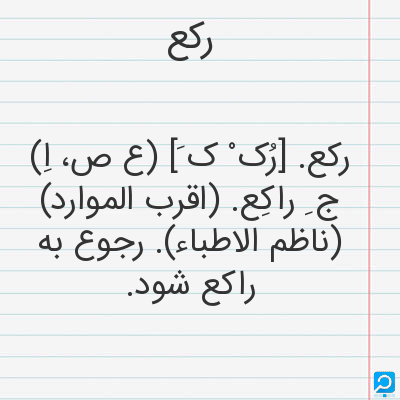 رکع
رکع. [رُک ْ ک َ] (ع ص، اِ)
ج ِ راکِع. (اقرب الموارد)
(ناظم الاطباء). رجوع به
راکع شود.